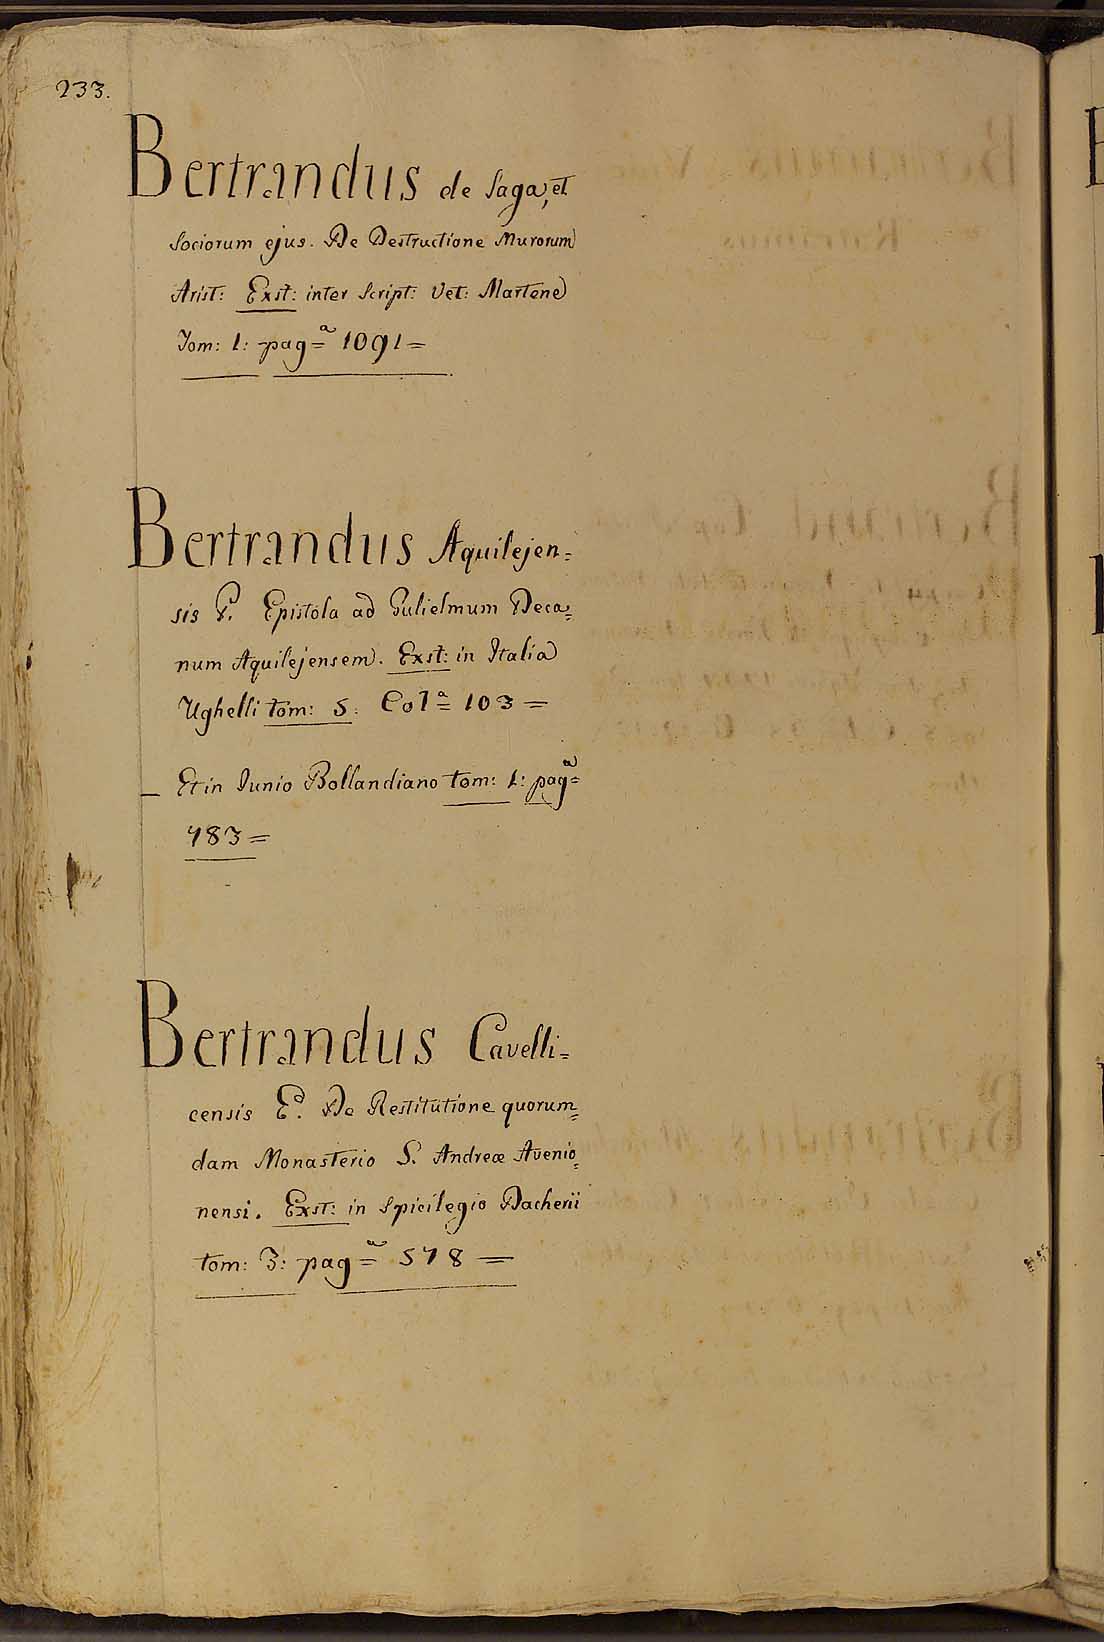 233.
Bertrandus de Saga, et
Sociorum ejus. De Destructione Murorum
Arist: Exst: inter Script: Vet: Martene
Tom: 1: pag=ª 1091=
Bertrandus Aquilejen=
sis P. Epistola ad Gulielmum Deca=
num Aquilejensem. Exst: in Italia
Ughelli tom: 5: Col=ª 103=
Et in Junio Bollandiano tom: 1: pag=ª
783=
Bertrandus Cavelli=
censis E. De Restitutione quorum=
dam Monasterio S. Andreæ Avenio=
nensi. Exst: in Spicilegio Dacherii
tom: 3: pag=ª 578=